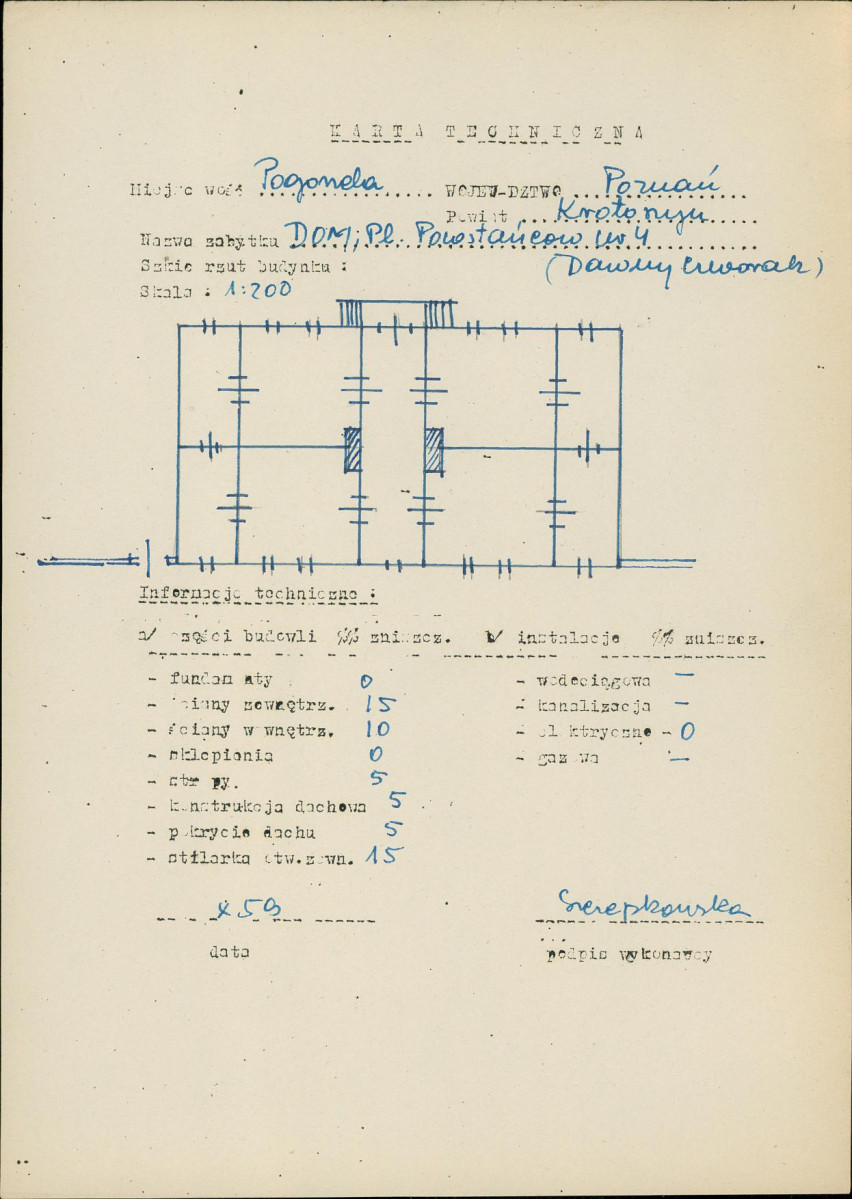 KARTA TECHNICZNA
Miejscowość Pogorzela WOJEWÓDZTWO Poznań
Powiat Krotoszyn
Nazwa zabytku DOM; Pl. Powstańców nr 4
Szkic rzut budynku : (Dawny czworak)
Skala : 1:200
Informacje techniczne :
a/ części budowli %% zniszcz. b/ instalacje %% zniszcz.
- fundamenty 0 - wodociągowa —
- ściany zewnętrz. 15 - kanalizacja —
- ściany wewnętrz. 10 - elektryczne - 0
- sklepienia 0 - gazowa —
- stropy. 5
- konstrukcja dachowa 5
- pokrycie dachu 5
- stolarka otw.zewn. 15
X 59 Szczepkowska
data podpis wykonawcy